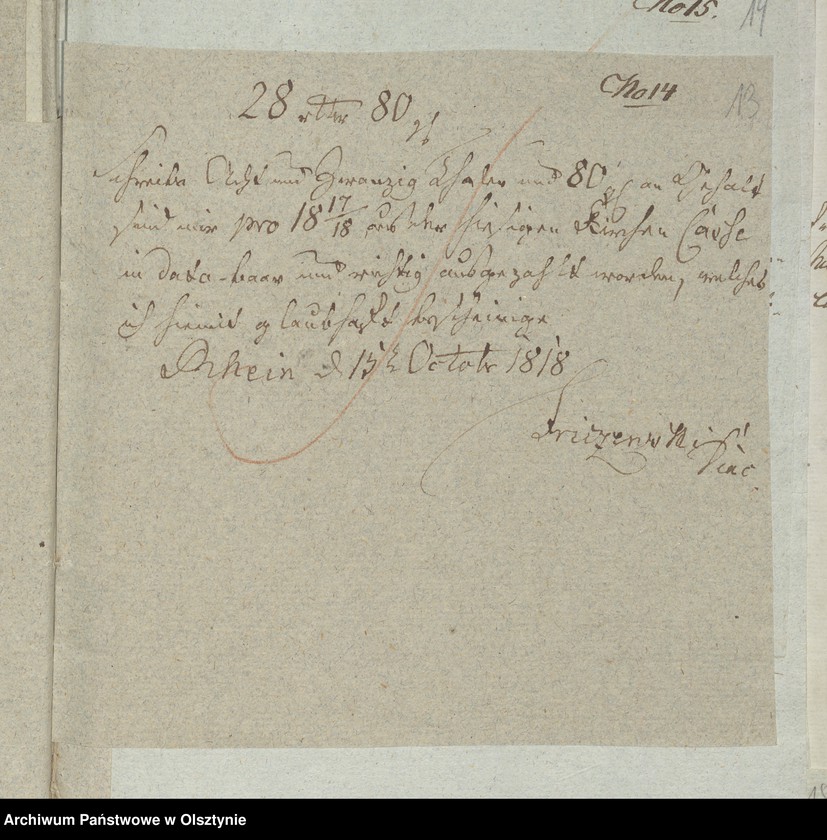 No 15.
14
No 14
13
28 rthr 80 gl
schreibe Acht und Zwanzig Thaler und 80 gl an Gehalt
sind mir pro 18 17/18 aus der hiesigen Kirchen Casse
in dato baar und richtig ausgezahlt worden, welches
ich hiemit glaubhaft bescheinige
Rhein d 15t Octobr 1818
Diac
Archiwum Państwowe w Olsztynie